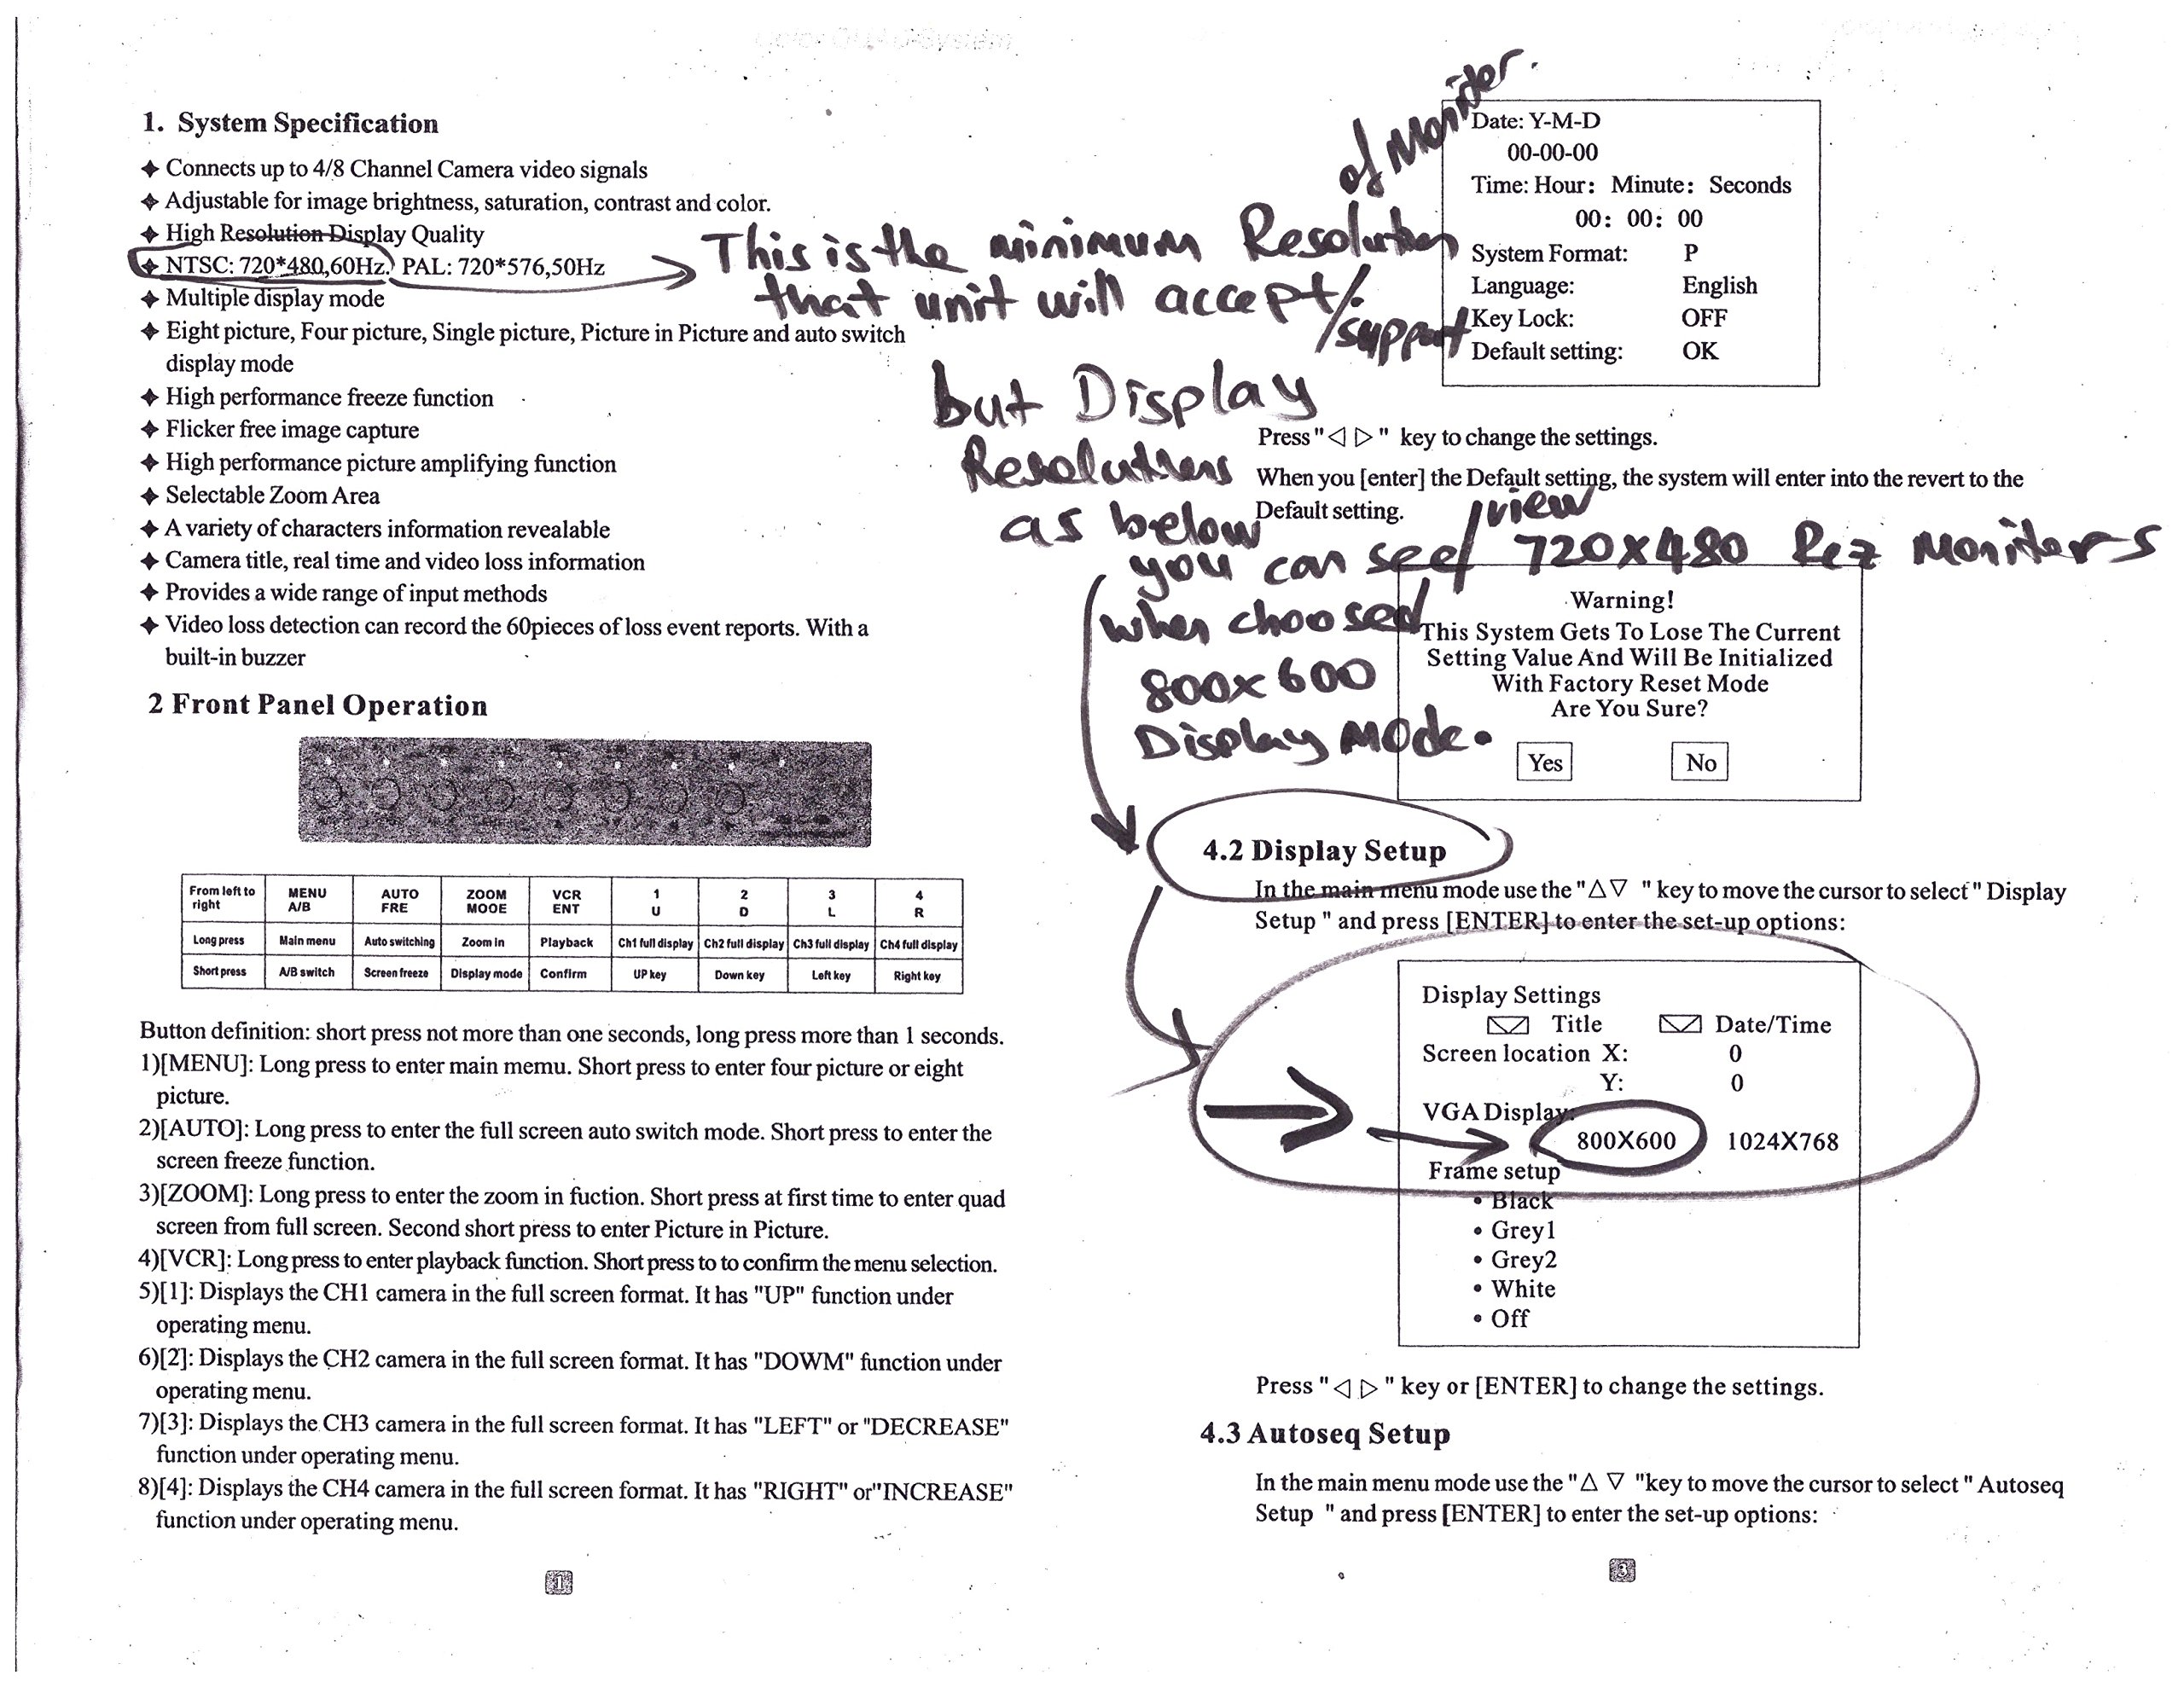 1. System Specification
✦ Connects up to 4/8 Channel Camera video signals
✦ Adjustable for image brightness, saturation, contrast and color.
✦ High Resolution Display Quality
✦ NTSC: 720*480,60Hz. PAL: 720*576,50Hz
✦ Multiple display mode
✦ Eight picture, Four picture, Single picture, Picture in Picture and auto switch
display mode
✦ High performance freeze function
✦ Flicker free image capture
✦ High performance picture amplifying function
✦ Selectable Zoom Area
✦ A variety of characters information revealable
✦ Camera title, real time and video loss information
✦ Provides a wide range of input methods
✦ Video loss detection can record the 60pieces of loss event reports. With a
built-in buzzer
2 Front Panel Operation
From left to right | MENU A/B | AUTO FRE | ZOOM MOOE | VCR ENT | 1 U | 2 D | 3 L | 4 R
Long press | Main menu | Auto switching | Zoom In | Playback | Ch1 full display | Ch2 full display | Ch3 full display | Ch4 full display
Short press | A/B switch | Screen freeze | Display mode | Confirm | UP key | Down key | Left key | Right key
Button definition: short press not more than one seconds, long press more than 1 seconds.
1)[MENU]: Long press to enter main memu. Short press to enter four picture or eight
picture.
2)[AUTO]: Long press to enter the full screen auto switch mode. Short press to enter the
screen freeze function.
3)[ZOOM]: Long press to enter the zoom in fuction. Short press at first time to enter quad
screen from full screen. Second short press to enter Picture in Picture.
4)[VCR]: Long press to enter playback function. Short press to to confirm the menu selection.
5)[1]: Displays the CH1 camera in the full screen format. It has "UP" function under
operating menu.
6)[2]: Displays the CH2 camera in the full screen format. It has "DOWM" function under
operating menu.
7)[3]: Displays the CH3 camera in the full screen format. It has "LEFT" or "DECREASE"
function under operating menu.
8)[4]: Displays the CH4 camera in the full screen format. It has "RIGHT" or"INCREASE"
function under operating menu.
1
This is the minimum Resolution of Moniter.
that unit will accept/support
but Display
Resolutions
as below
you can see/view 720X480 Rez Moniters
when choosed
800x600
Display Mode.
Date: Y-M-D
00-00-00
Time: Hour: Minute: Seconds
00: 00: 00
System Format: P
Language: English
Key Lock: OFF
Default setting: OK
Press "◁ ▷" key to change the settings.
When you [enter] the Default setting, the system will enter into the revert to the
Default setting.
Warning!
This System Gets To Lose The Current
Setting Value And Will Be Initialized
With Factory Reset Mode
Are You Sure?
Yes No
4.2 Display Setup
In the main menu mode use the "△▽ " key to move the cursor to select " Display
Setup " and press [ENTER] to enter the set-up options:
Display Settings
Title Date/Time
Screen location X: 0
Y: 0
VGA Display:
800X600 1024X768
Frame setup
• Black
• Grey1
• Grey2
• White
• Off
Press "◁ ▷ " key or [ENTER] to change the settings.
4.3 Autoseq Setup
In the main menu mode use the "△ ▽ "key to move the cursor to select " Autoseq
Setup " and press [ENTER] to enter the set-up options:
3